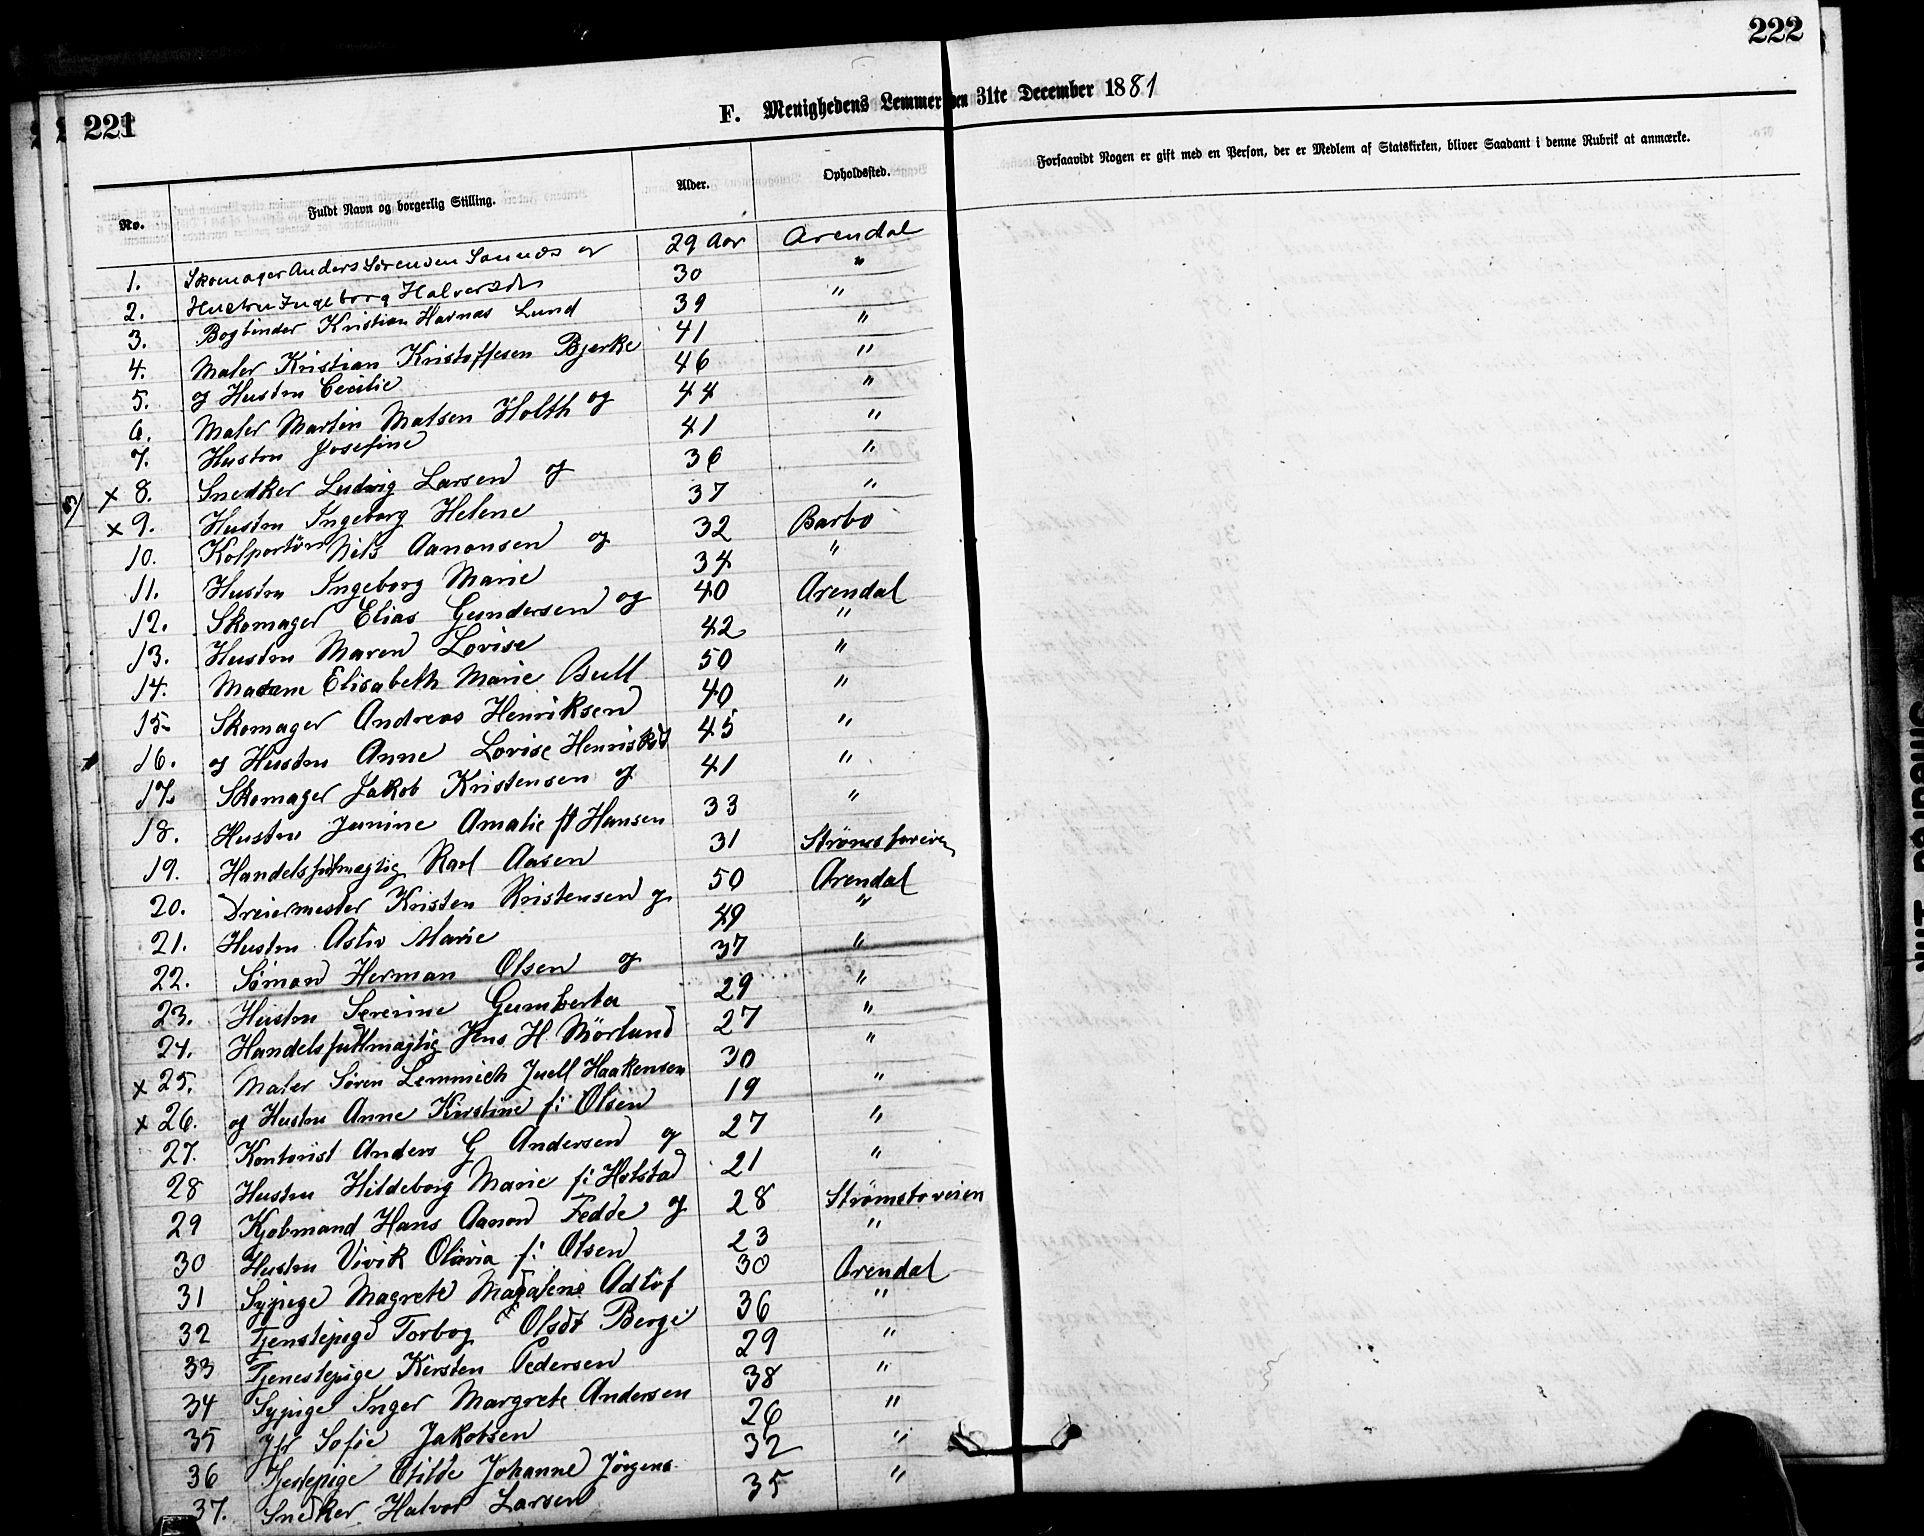 222
221
F. Menighedens Lemmer den 31te December 1881
No.
Fuldt Navn og borgerlig Stilling.
Alder.
Opholdssted.
Forsaavidt Nogen er gift med en Person, der er Medlem af Statskirken, bliver Saadant i denne Rubrik at anmærke.
1. Skomager Anders Sørensen Sannes og 29 Aar Arendal
2. Hustru Ingeborg Halversdtr 30 "
3. Bogbinder Kristian Havnas Lund 39 "
4. Maler Kristian Kristoffesen Bjerke 41 "
5. og Hustru Cecilie 46 "
6. Maler Martin Matsen Holth og 44 "
7. Hustru Josefine 41 "
x 8. Snedker Ludvig Larsen og 36 "
x 9. Hustru Ingeborg Helene 37 "
10. Kolportør Nils Aanonsen og 32 Barbo
11. Hustru Ingeborg Marie 34 "
12. Skomager Elias Gundersen og 40 Arendal
13. Hustru Maren Lovise 42 "
14. Madame Elisabeth Marie Bull 50 "
15. Skomager Andreas Henriksen 40 "
16. og Hustru Anne Lovise Henriksdt 45 "
17. Skomager Jakob Kristensen og 41 "
18. Hustru Junine Amalie ft Hansen 33 "
19. Handelsfuldmægtig Karl Aasen 31 Strømstoveien
20. Dreiermester Kristen Kristensen og 50 Arendal
21. Hustru Astiv Marie 49 "
22. Sømand Herman Olsen og 37 "
23. Hustru Sererine Gumberta 29 "
24. Handelsfuldmajtig Jens H. Mörlund 27 "
x 25. Maler Søren Lemmich Juell Haakensen 30 "
x 26. og Hustru Anne Kirstine f: Olsen 19 "
27. Kontorist Anders G Andersen og 27 "
28 Hustru Hildeborg Marie f: Holstad 21 "
29 Kjøbmand Hans Aanon Fedde og 28 Strømstoveien
30 Hustru Vivik Olavia f: Olsen 23 "
31 Sypige Magrete Madalene Adlöf 30 Arendal
32 Tjenstepige Torbog Olsdt Berge 36 "
33 Tjenestepige Kirsten Pedersen 29 "
34 Sypige Inger Margrete Andersen 38 "
35 Jfr Sofie Jakobsen 26 "
36 Tjestepige Otilde Johanne Jörgens. 32 "
37. Snedker Halvor Larsen 35 "